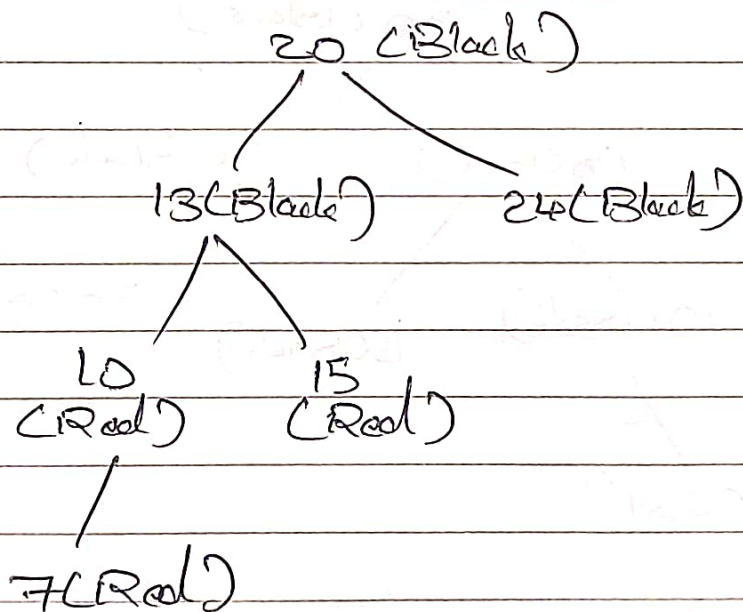 20 (Black)
13(Black) 24(Black)
10 15
(Red) (Red)
7(Red)